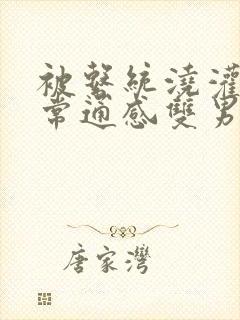 被繫統澆灌
常通感雙男
唐家灣